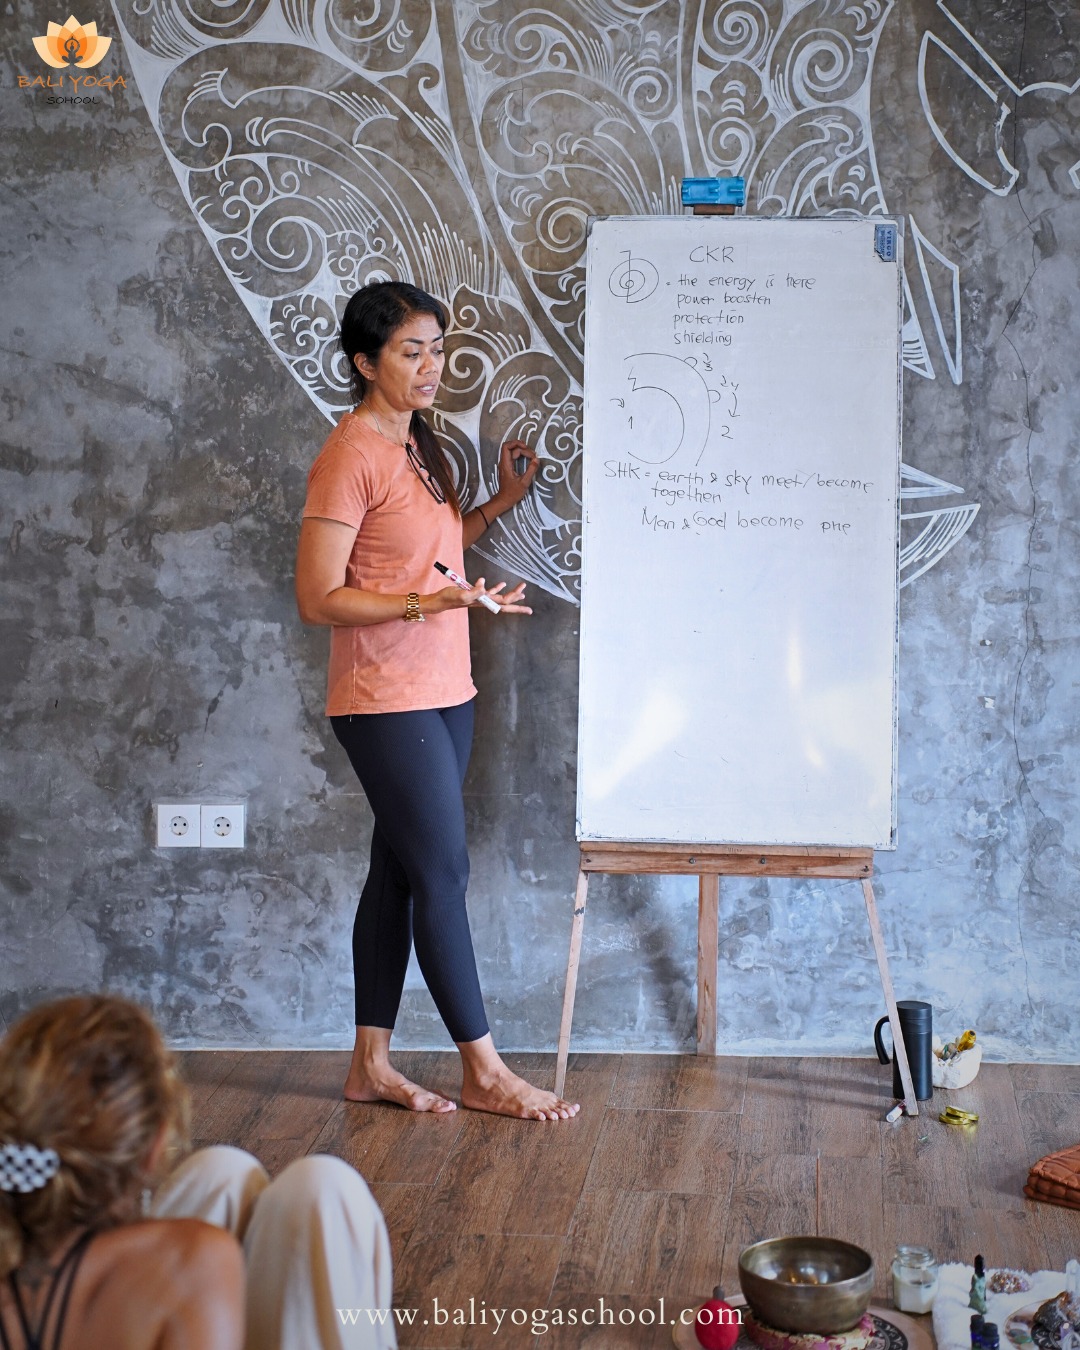 BALI YOGA
SCHOOL
VIRGO
CKR
= the energy is there
power boosten
protection
shielding
1
2
SHK = earth & sky meet/become
togethen
Man & God become one
www.baliyogaschool.com